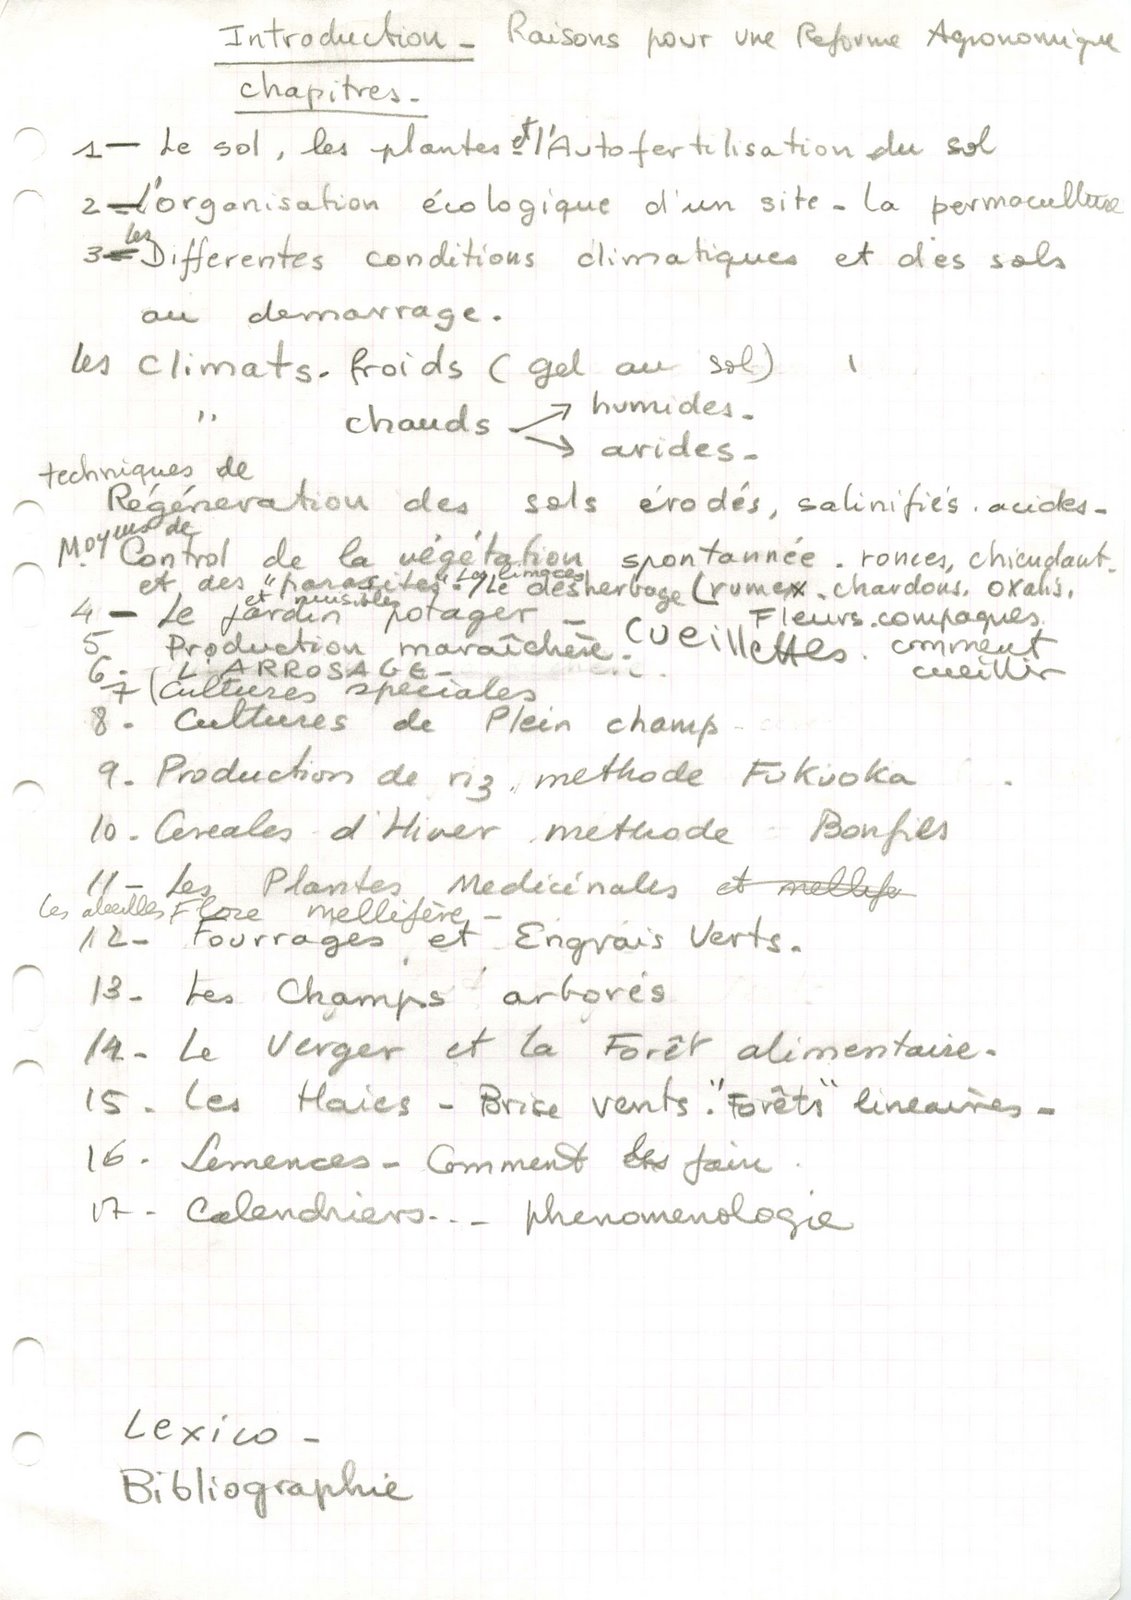 Introduction - Raisons pour une Reforme Agronomique
chapitres.-
1 - Le sol, les plantes et l'Autofertilisation du sol
2 - L'organisation écologique d'un site - la permaculture
3 - les Differentes conditions climatiques et des sols
au demarrage.
les climats - froids (gel au sol)
" chauds → humides -
→ arides -
techniques de
Régéneration des sols érodés, salinifiés. acides -
Moyens de
Control de la végétation spontannée. ronces, chiendant.
et des "parasites" - les limaces / Le désherbage (rumex. chardons. oxalis.
et nuisibles
4 - Le jardin potager - Fleurs. compagnes
5 Production maraîchère. Cueillettes. comment cueillir
6 - L'ARROSAGE -
7 (Cultures speciales
8 - Cultures de Plein champ
9. Production de riz, methode Fukuoka
10. Cereales d'Hiver methode Bonfils
11 - Les Plantes Medicinales et mellife
les abeilles Flore mellifère -
12 - Fourrages et Engrais Verts.
13 - Les Champs arborés
14 - Le Verger et la Forêt alimentaire -
15 - Les Haies - Brise vents. "Forêts" lineaires -
16 - Semences - Comment les faire.
17 - Calendriers... - phenomenologie
Lexico -
Bibliographie